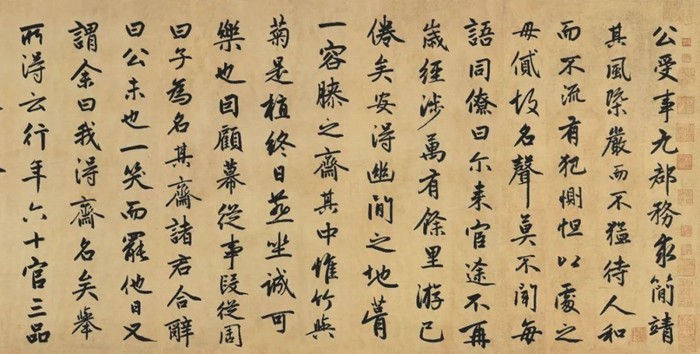 公受事九郡務求簡靖
其風際嚴而不猛待人和
而不流有犯惻怛以處之
毋貳故名聲莫不聞每
語同僚曰尔来官途不再
歲經涉萬有餘里游已
倦矣安得幽閒之地葺
一容膝之齋其中惟竹與
菊是植終日燕坐誠可
樂也回顧幕從事段從周
曰子為名其齋諸君合辭
曰公未也一笑而罷他日又
謂余曰我得齋名矣舉
所得云行年六十官三品